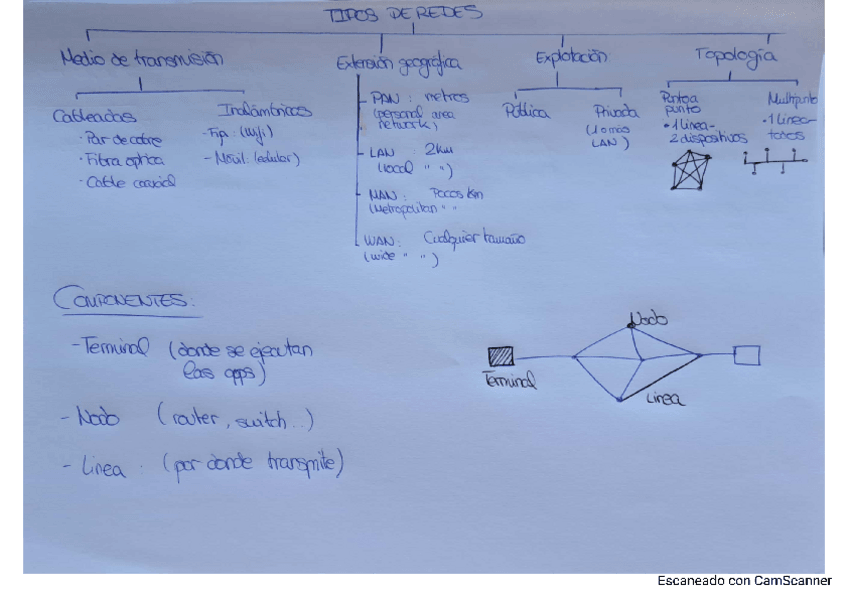 TIPOS DE REDES
Medio de transmisión
Cableados
· Par de cobre
· Fibra optica
· Cable coaxial
Inalámbricos
- Fija: (wifi)
- Móvil: (celular)
Extensión geográfica
- PAN: metros
(personal area
network)
- LAN 2km
(local " ")
- MAN: Pocos Km
(Metropolitan " "
- WAN: Cualquier tamaño
(wide " " )
Explotación
Pública
Privada
(1 o más
LAN)
Topología
Punto a
punto
· 1 linea -
2 dispositivos
Multipunto
· 1 linea -
todos
COMPONENTES:
- Terminal (donde se ejecutan
las apps)
- Nodo (router, switch..)
- Linea: (por donde transmite)
Nodo
Terminal
Linea
Escaneado con CamScanner